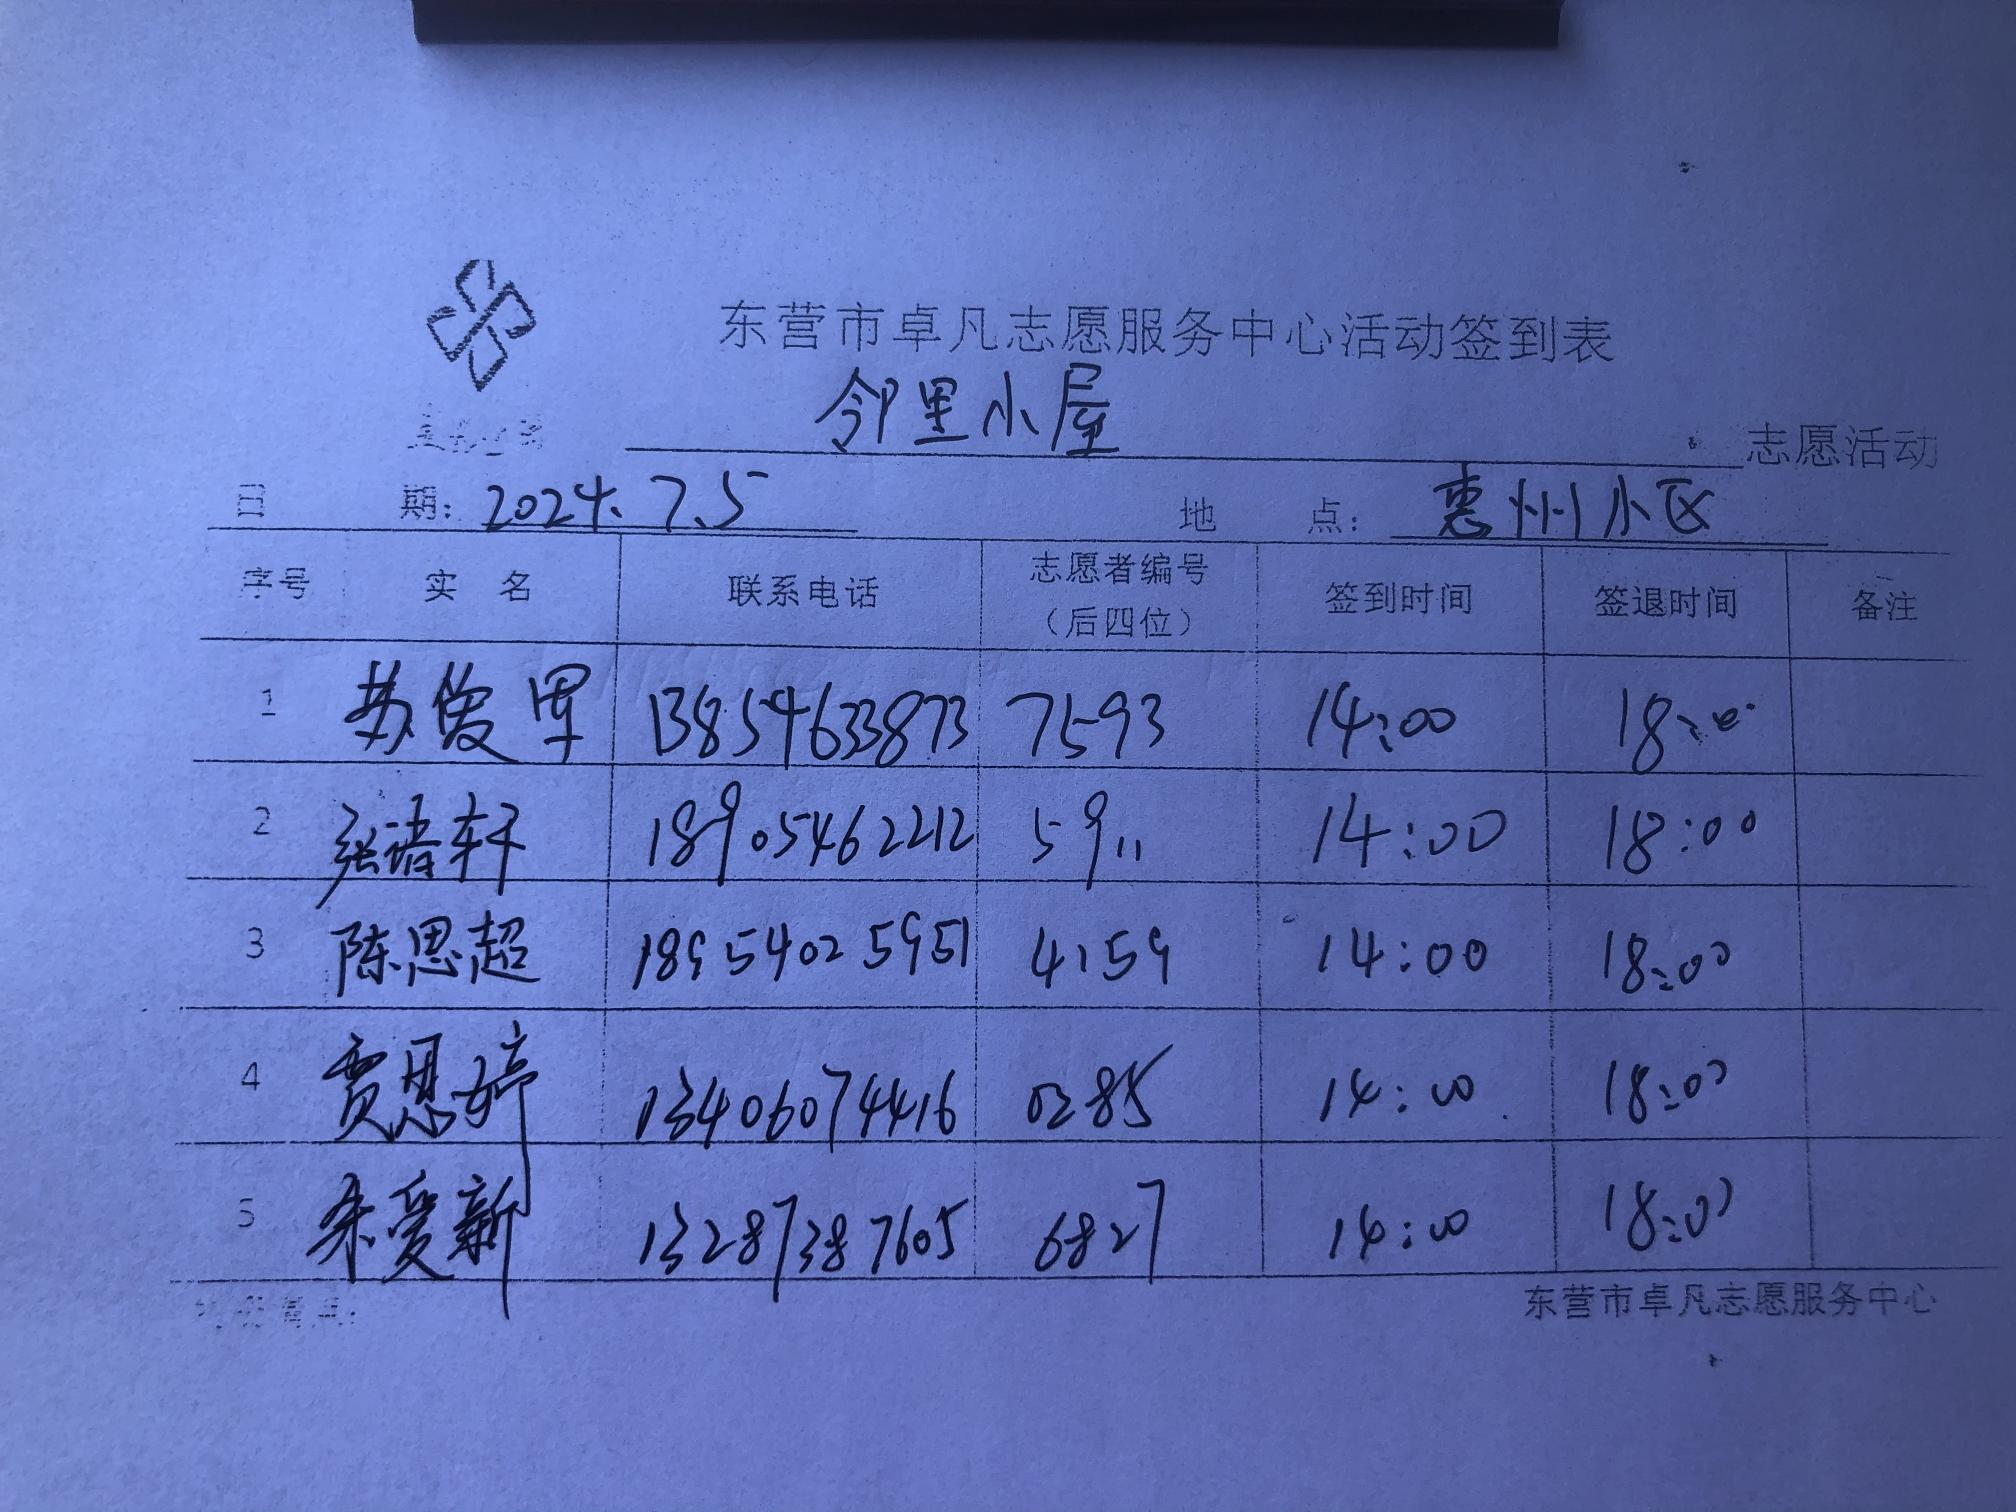 东营市卓凡志愿服务中心活动签到表
邻里小屋 志愿活动
日 期: 2024.7.5 地 点: 惠州小区
序号 实 名 联系电话 志愿者编号（后四位） 签到时间 签退时间 备注
1 苏俊军 13854633873 7593 14:00 18:00
2 张诸轩 18905462212 5911 14:00 18:00
3 陈思超 18954025951 4159 14:00 18:00
4 贾恩婷 13406074416 0285 14:00 18:00
5 朱爱新 13287387605 6827 14:00 18:00
东营市卓凡志愿服务中心